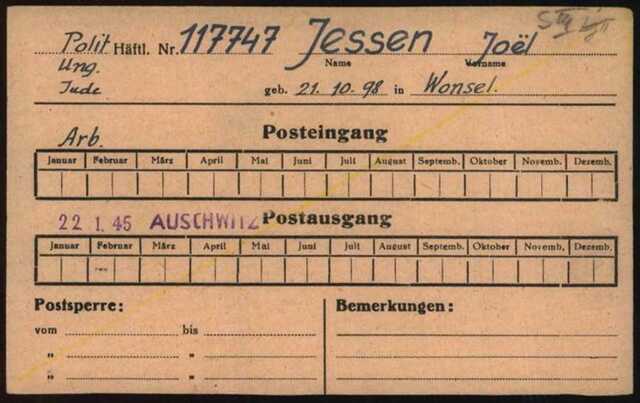 Polit Häftl. Nr. 117747 Jessen Joël
Ung. Name Vorname
Jude geb. 21.10.98 in Wonsel.
Arb. Posteingang
Januar Februar März April Mai Juni Juli August Septemb. Oktober Novemb. Dezemb.
22 1. 45 AUSCHWITZ Postausgang
Januar Februar März April Mai Juni Juli August Septemb. Oktober Novemb. Dezemb.
Postsperre: Bemerkungen:
vom bis
" "
" "